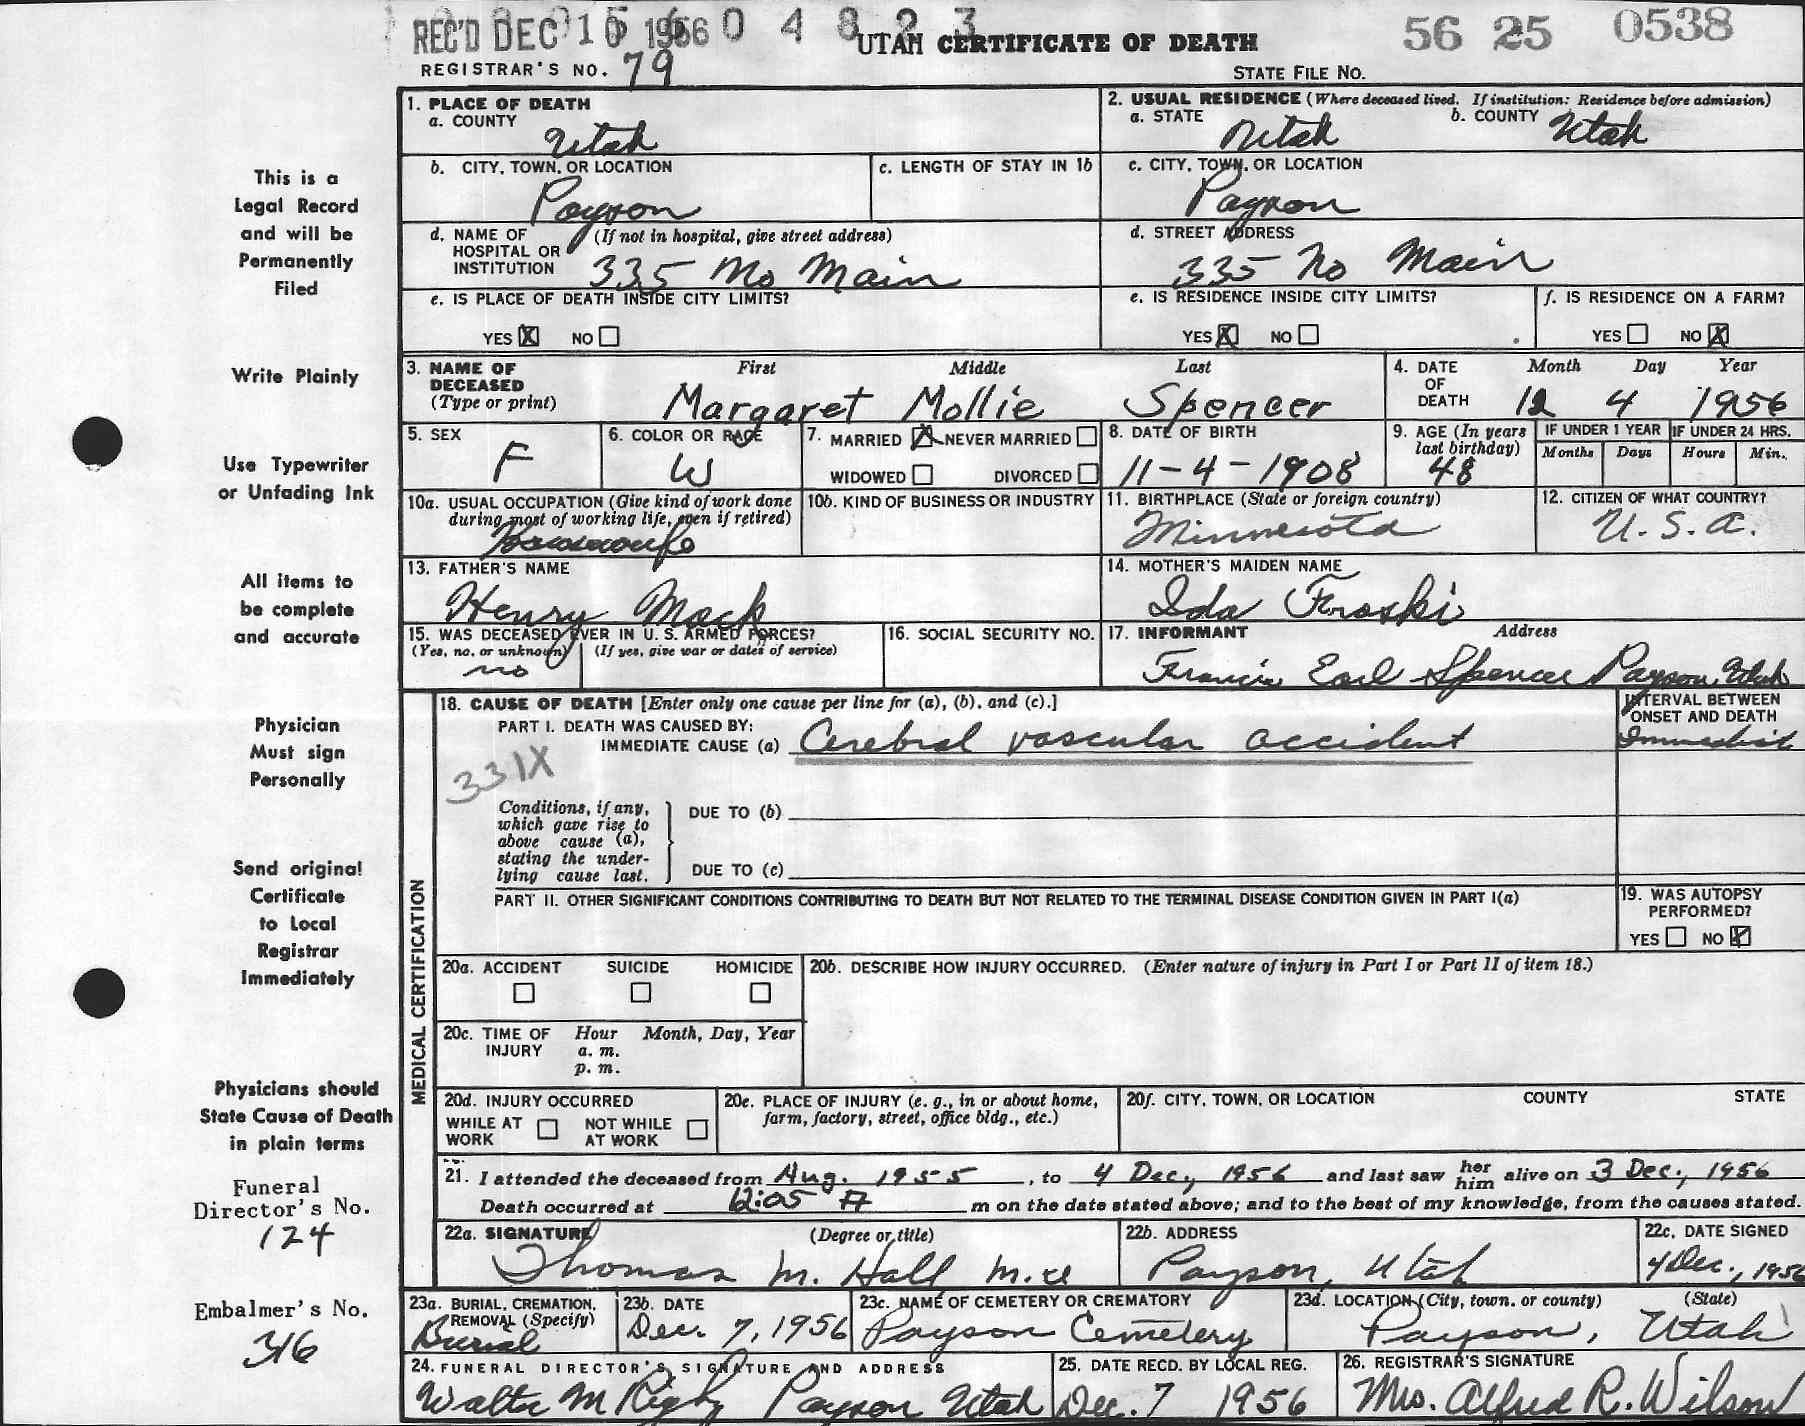 REC'D DEC 10 1956 0 4 8 2 3
56 25 0538
UTAH CERTIFICATE OF DEATH
REGISTRAR'S NO. 79
STATE FILE NO.
1. PLACE OF DEATH
a. COUNTY
Utah
2. USUAL RESIDENCE (Where deceased lived. If institution: Residence before admission)
a. STATE Utah b. COUNTY Utah
b. CITY, TOWN, OR LOCATION
Payson
c. LENGTH OF STAY IN 1b
c. CITY, TOWN, OR LOCATION
Payson
d. NAME OF HOSPITAL OR INSTITUTION (If not in hospital, give street address)
335 No Main
d. STREET ADDRESS
335 No Main
e. IS PLACE OF DEATH INSIDE CITY LIMITS?
YES X NO
e. IS RESIDENCE INSIDE CITY LIMITS?
YES X NO
f. IS RESIDENCE ON A FARM?
YES NO X
3. NAME OF DECEASED (Type or print)
First Middle Last
Margaret Mollie Spencer
4. DATE OF DEATH
Month Day Year
12 4 1956
5. SEX
F
6. COLOR OR RACE
W
7. MARRIED X NEVER MARRIED
WIDOWED DIVORCED
8. DATE OF BIRTH
11-4-1908
9. AGE (In years last birthday)
48
IF UNDER 1 YEAR
Months Days
IF UNDER 24 HRS.
Hours Min.
10a. USUAL OCCUPATION (Give kind of work done during most of working life, even if retired)
Housewife
10b. KIND OF BUSINESS OR INDUSTRY
11. BIRTHPLACE (State or foreign country)
Minnesota
12. CITIZEN OF WHAT COUNTRY?
U.S.A.
13. FATHER'S NAME
Henry Mack
14. MOTHER'S MAIDEN NAME
Ida
15. WAS DECEASED EVER IN U. S. ARMED FORCES?
(Yes, no, or unknown) (If yes, give war or dates of service)
no
16. SOCIAL SECURITY NO.
17. INFORMANT Address
Francis Earl Spencer Payson, Utah
18. CAUSE OF DEATH [Enter only one cause per line for (a), (b), and (c).]
PART I. DEATH WAS CAUSED BY:
IMMEDIATE CAUSE (a) Cerebral vascular accident
INTERVAL BETWEEN ONSET AND DEATH
Immediate
331X
Conditions, if any, which gave rise to above cause (a), stating the underlying cause last.
DUE TO (b)
DUE TO (c)
PART II. OTHER SIGNIFICANT CONDITIONS CONTRIBUTING TO DEATH BUT NOT RELATED TO THE TERMINAL DISEASE CONDITION GIVEN IN PART I(a)
19. WAS AUTOPSY PERFORMED?
YES NO X
20a. ACCIDENT SUICIDE HOMICIDE
20b. DESCRIBE HOW INJURY OCCURRED. (Enter nature of injury in Part I or Part II of item 18.)
20c. TIME OF INJURY Hour Month, Day, Year
a. m.
p. m.
20d. INJURY OCCURRED
WHILE AT WORK NOT WHILE AT WORK
20e. PLACE OF INJURY (e. g., in or about home, farm, factory, street, office bldg., etc.)
20f. CITY, TOWN, OR LOCATION COUNTY STATE
21. I attended the deceased from Aug. 1955, to 4 Dec, 1956 and last saw her him alive on 3 Dec., 1956
Death occurred at 12:05 A m on the date stated above; and to the best of my knowledge, from the causes stated.
22a. SIGNATURE (Degree or title)
Thomas M. Hall M.D.
22b. ADDRESS
Payson, Utah
22c. DATE SIGNED
4 Dec., 1956
23a. BURIAL, CREMATION, REMOVAL (Specify)
Burial
23b. DATE
Dec. 7, 1956
23c. NAME OF CEMETERY OR CREMATORY
Payson Cemetery
23d. LOCATION (City, town, or county) (State)
Payson, Utah
24. FUNERAL DIRECTOR'S SIGNATURE AND ADDRESS
Walter M Rigby Payson Utah
25. DATE RECD. BY LOCAL REG.
Dec. 7 1956
26. REGISTRAR'S SIGNATURE
Mrs. Alfred R. Wilson
MEDICAL CERTIFICATION
This is a
Legal Record
and will be
Permanently
Filed
Write Plainly
Use Typewriter
or Unfading Ink
All items to
be complete
and accurate
Physician
Must sign
Personally
Send original
Certificate
to Local
Registrar
Immediately
Physicians should
State Cause of Death
in plain terms
Funeral
Director's No.
124
Embalmer's No.
316